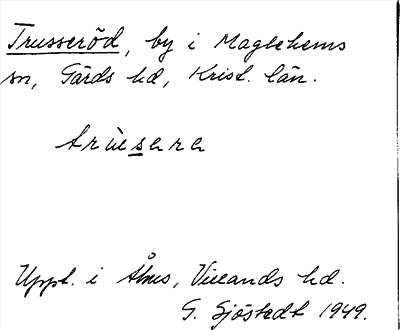 Trusseröd, by i Maglehems
sn, Gärds hd, Krist. län.
trùsera
Uppt. i Åhus, Villands hd.
G. Sjöstedt 1949.